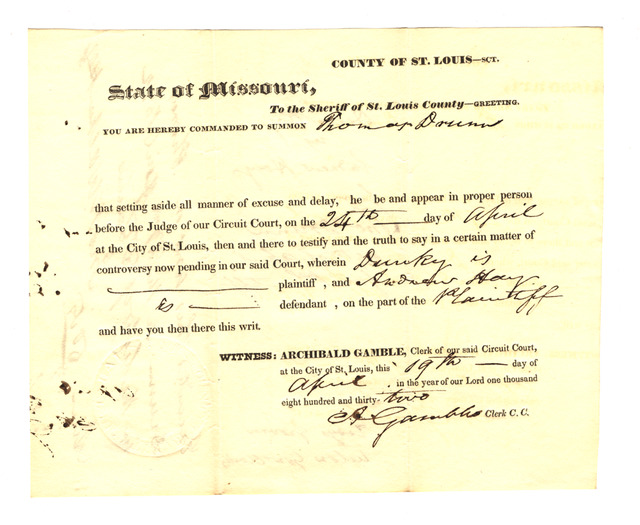 COUNTY OF ST. LOUIS—SCT.
State of Missouri,
To the Sheriff of St. Louis County—GREETING.
YOU ARE HEREBY COMMANDED TO SUMMON Thomas Drum
that setting aside all manner of excuse and delay, he be and appear in proper person
before the Judge of our Circuit Court, on the 24th day of April
at the City of St. Louis, then and there to testify and the truth to say in a certain matter of
controversy now pending in our said Court, wherein Dunky is
plaintiff , and Andrew Hay
is defendant , on the part of the Plaintiff
and have you then there this writ.
WITNESS: ARCHIBALD GAMBLE, Clerk of our said Circuit Court,
at the City of St. Louis, this 19th day of
April in the year of our Lord one thousand
eight hundred and thirty-two
A Gamble Clerk C. C.